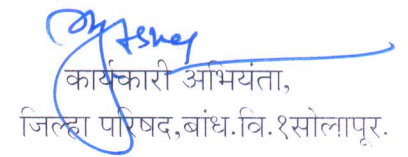 कार्यकारी अभियंता,
जिल्हा परिषद,बांध.वि.१सोलापूर.